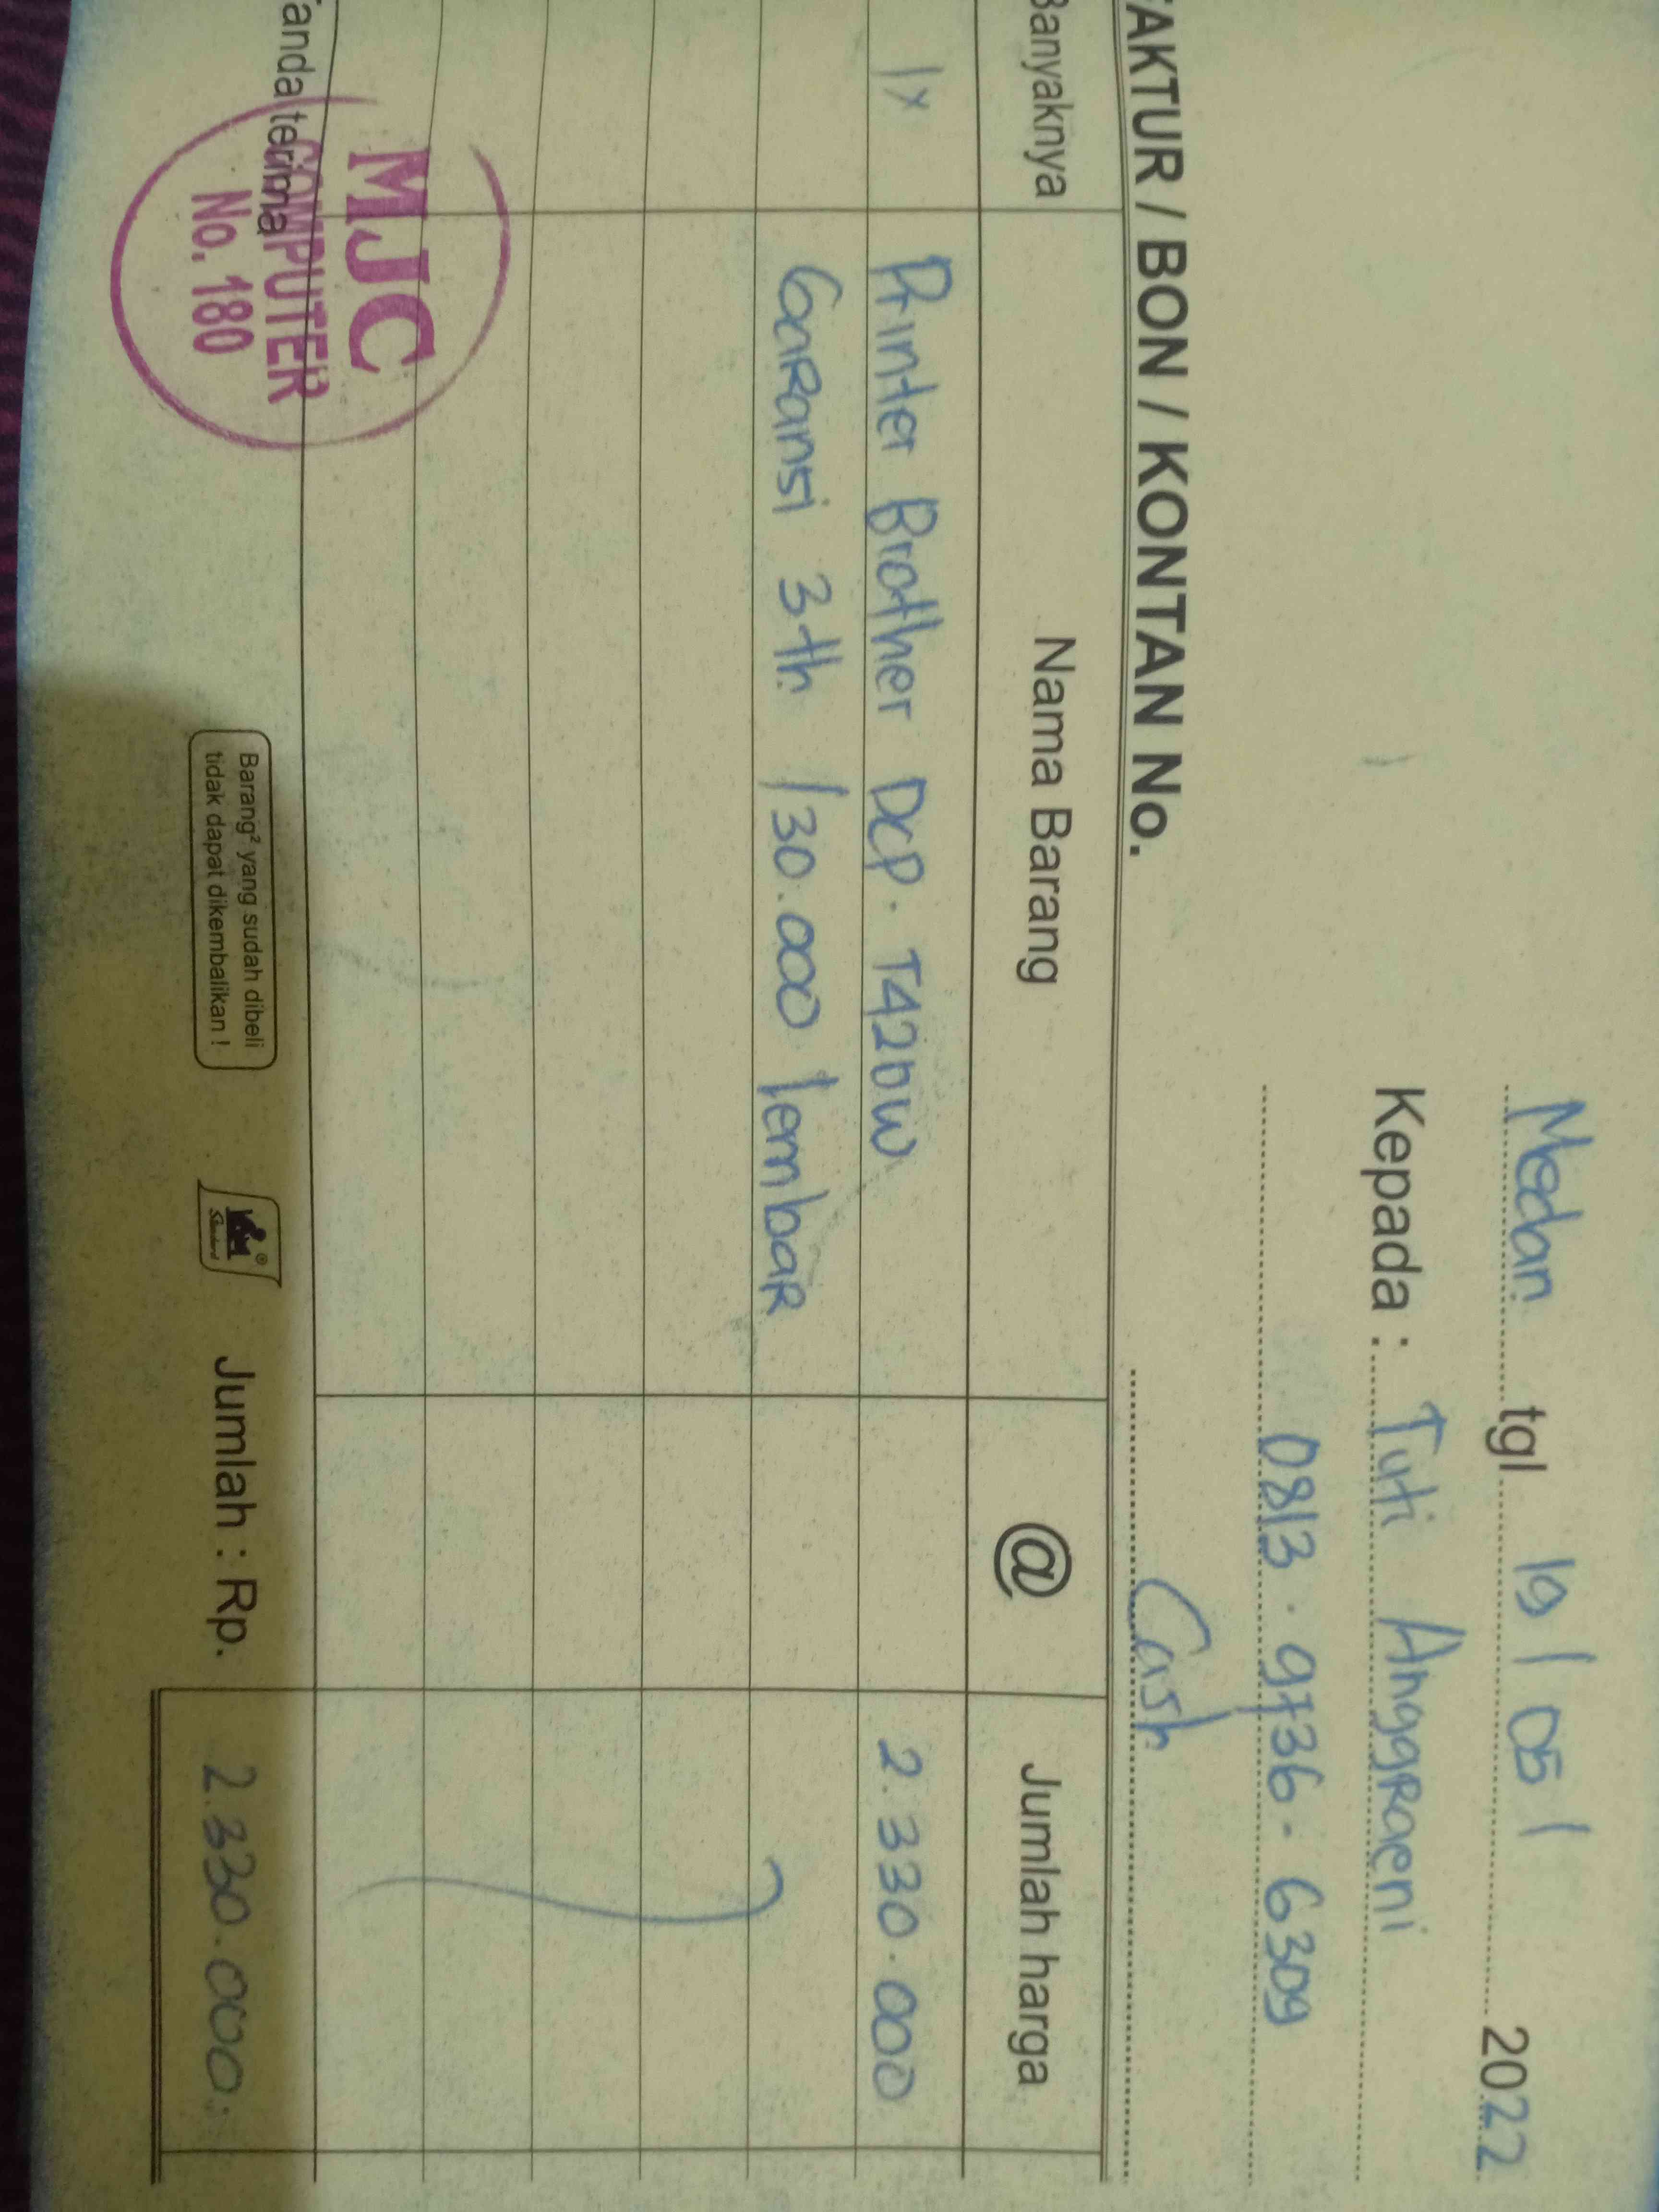 Medan tgl 19 / 05 / 2022
Kepada : Tuti Anggraeni
0813 . 9736 . 6309
FAKTUR / BON / KONTAN No. Cash
Banyaknya Nama Barang @ Jumlah harga
1x Printer Brother DCP . T420W 2.330.000
Garansi 3 th / 30.000 lembar
MJC
COMPUTER
No. 180
Tanda terima
Barang² yang sudah dibeli
tidak dapat dikembalikan !
Jumlah : Rp. 2.330.000